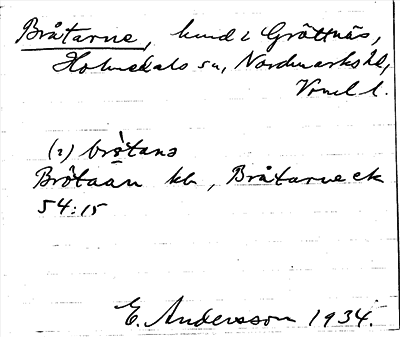 Bråtarne, hmd i Gröttnäs,
Holmedals sn, Nordmarks hd,
Vrml l.
(i) brötana
Brötaån kb, Bråtarne ek
54:15
E. Andersson 1934.